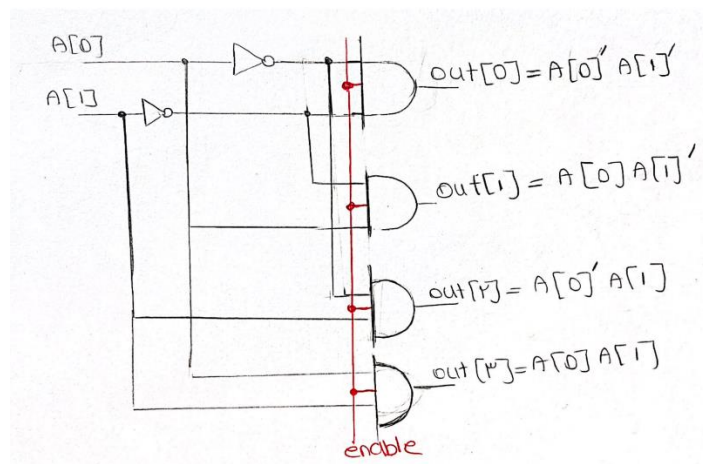 A[0]
A[1]
out[0] = A[0]′ A[1]′
out[1] = A[0] A[1]′
out[۲] = A[0]′ A[1]
out[۳] = A[0] A[1]
enable